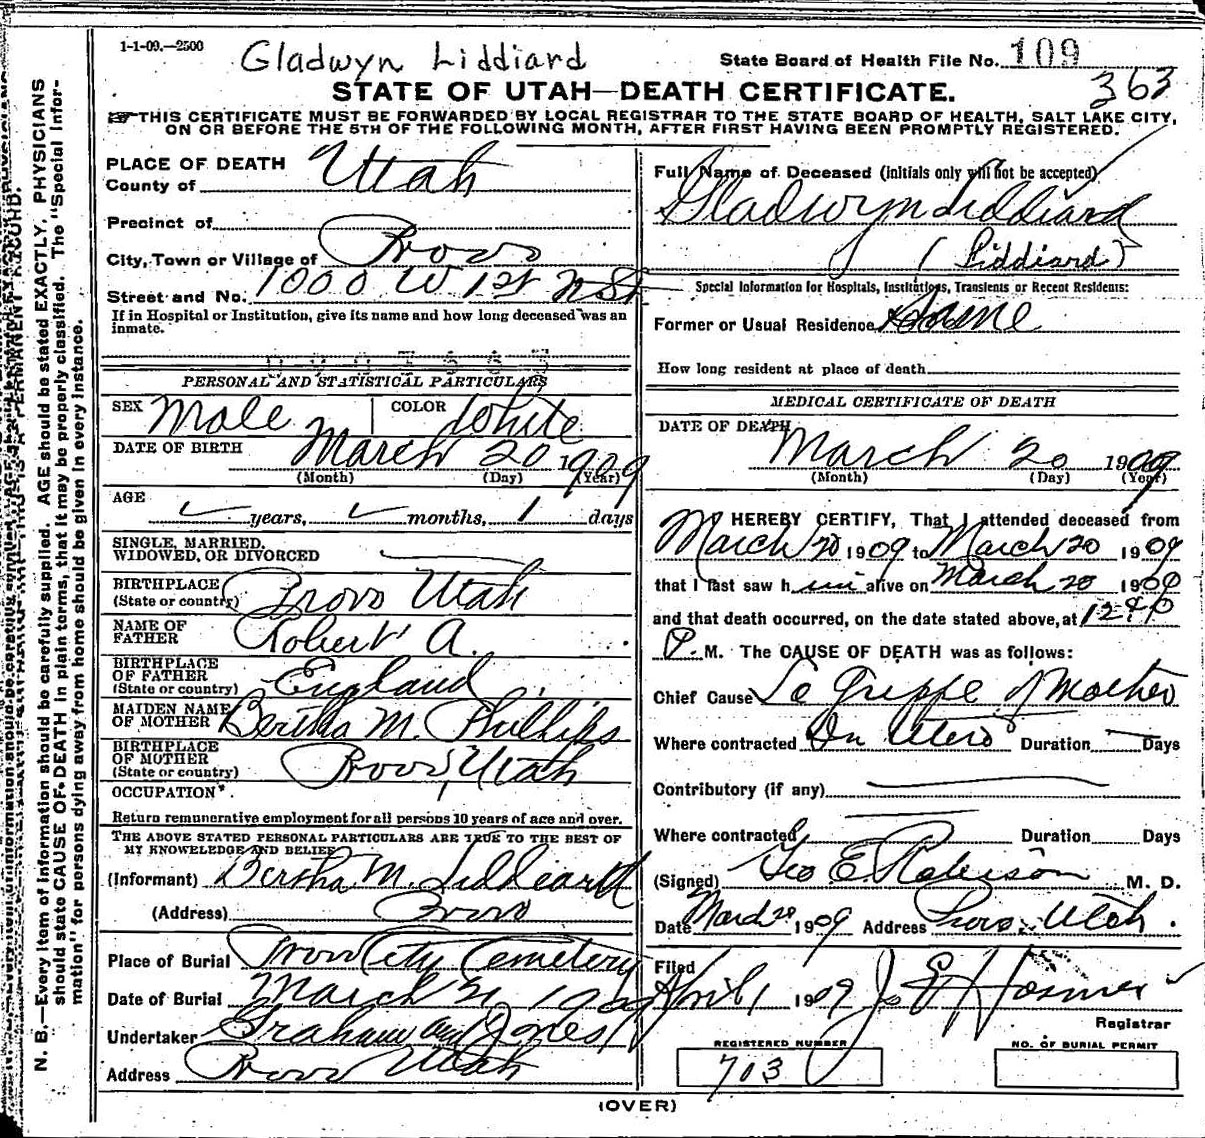 1-1-09.—2500
Gladwyn Liddiard
State Board of Health File No. 109
363
STATE OF UTAH—DEATH CERTIFICATE.
THIS CERTIFICATE MUST BE FORWARDED BY LOCAL REGISTRAR TO THE STATE BOARD OF HEALTH, SALT LAKE CITY,
ON OR BEFORE THE 5TH OF THE FOLLOWING MONTH, AFTER FIRST HAVING BEEN PROMPTLY REGISTERED.
N. B.—Every item of information should be carefully supplied. AGE should be stated EXACTLY. PHYSICIANS
should state CAUSE OF DEATH in plain terms, that it may be properly classified. The "Special Infor-
mation" for persons dying away from home should be given in every instance.
PLACE OF DEATH
County of Utah
Precinct of
City, Town or Village of Provo
Street and No. 1000 W 1st N St
If in Hospital or Institution, give its name and how long deceased was an
inmate.
PERSONAL AND STATISTICAL PARTICULARS
SEX Male COLOR White
DATE OF BIRTH March 20 1909
(Month) (Day) (Year)
AGE
years, months, 1 days
SINGLE, MARRIED,
WIDOWED, OR DIVORCED
BIRTHPLACE
(State or country) Provo Utah
NAME OF
FATHER Robert A.
BIRTHPLACE
OF FATHER
(State or country) England
MAIDEN NAME
OF MOTHER Bertha M. Phillips
BIRTHPLACE
OF MOTHER
(State or country) Provo, Utah
OCCUPATION
Return remunerative employment for all persons 10 years of age and over.
THE ABOVE STATED PERSONAL PARTICULARS ARE TRUE TO THE BEST OF
MY KNOWLEDGE AND BELIEF
(Informant) Bertha M. Liddieard
(Address) Provo
Place of Burial Provo City Cemetery
Date of Burial March 21, 1909
Undertaker Graham and Jones
Address Provo Utah
Full Name of Deceased (initials only will not be accepted)
Gladwyn Liddiard
(Liddiard)
Special Information for Hospitals, Institutions, Transients or Recent Residents:
Former or Usual Residence Same
How long resident at place of death
MEDICAL CERTIFICATE OF DEATH
DATE OF DEATH
March 20 1909
(Month) (Day) (Year)
I HEREBY CERTIFY, That I attended deceased from
March 20 1909 to March 20 1909
that I last saw him alive on March 20 1909
and that death occurred, on the date stated above, at 12 40
P. M. The CAUSE OF DEATH was as follows:
Chief Cause La Grippe of Mother
Where contracted In Utero Duration Days
Contributory (if any)
Where contracted Duration Days
(Signed) Geo E. Robison M. D.
Date March 20 1909 Address Provo, Utah.
Filed
April 1 1909 J. E. Hosmer
Registrar
REGISTERED NUMBER
713
NO. OF BURIAL PERMIT
(OVER)